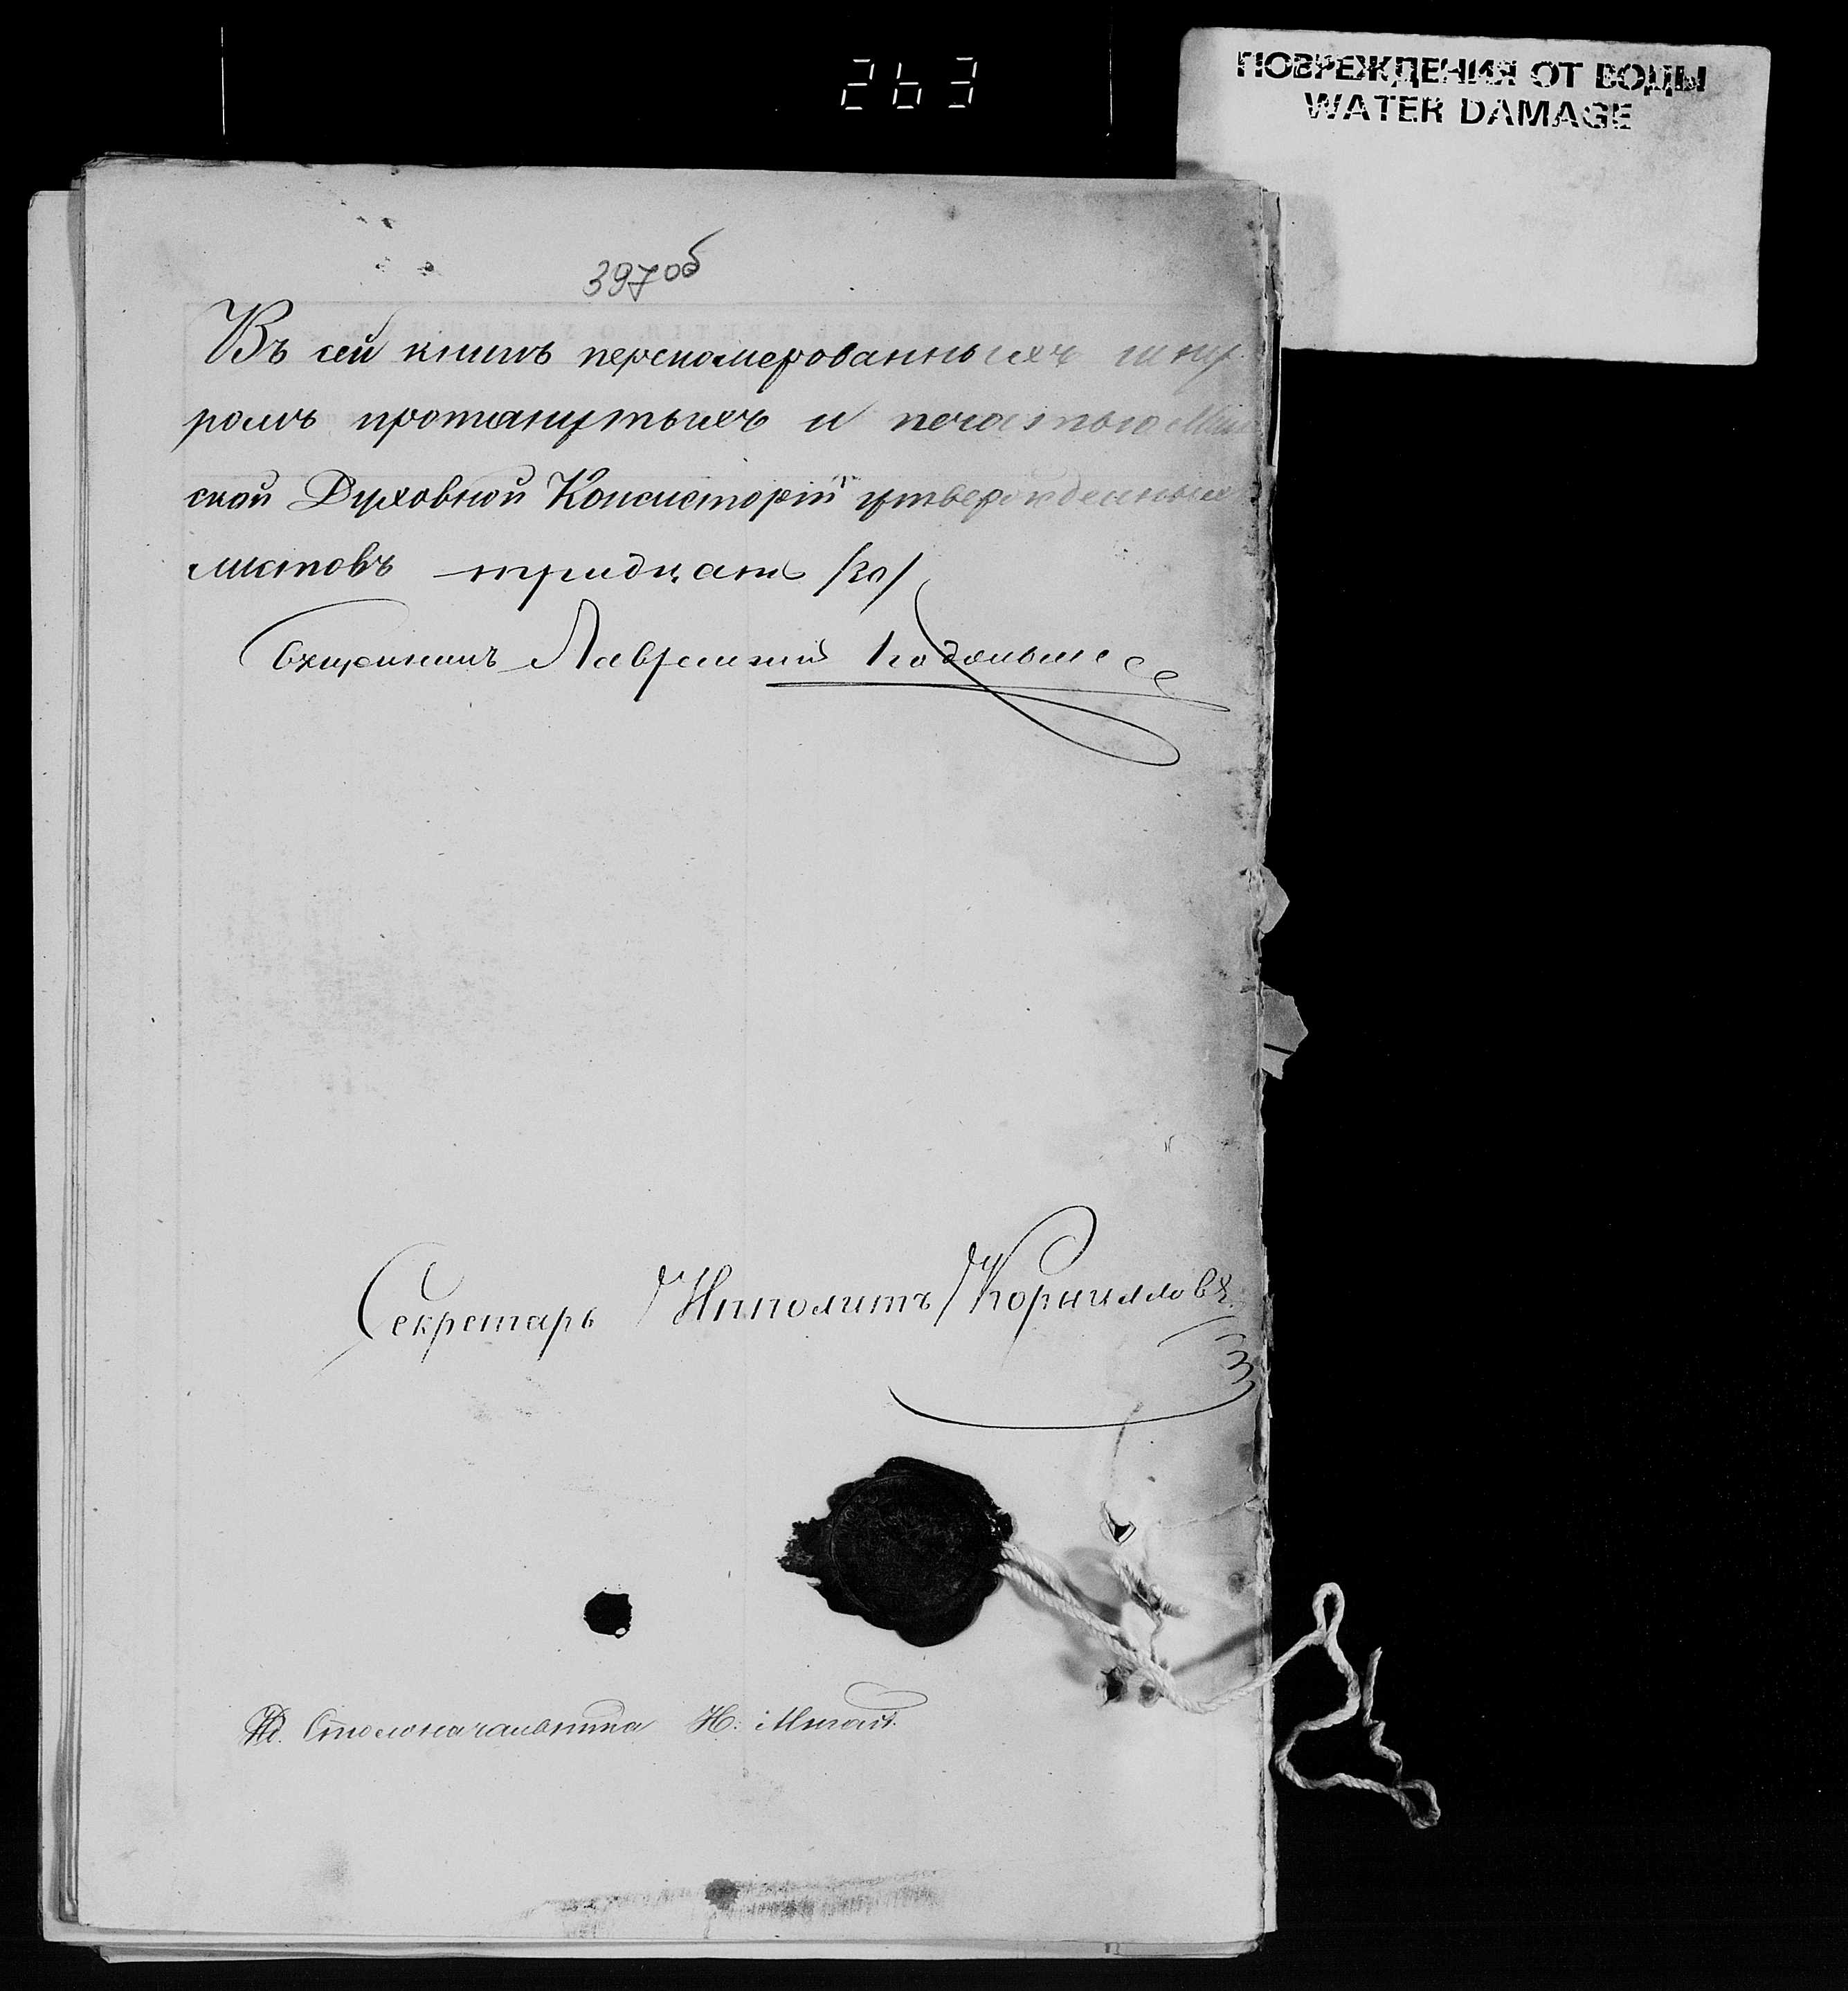 263
ПОВРЕЖДЕНИЯ ОТ ВОДЫ
WATER DAMAGE
397об
Въ сей книгѣ перепомерованныхъ шну
ромъ протянутыхъ и печатью Мин
ской Духовной Консисторіи утвержденныхъ
листовъ тридцать /30/
Священникъ Лаврентій
Секретарь Ипполитъ Корнилловъ
Столоначальника Н: